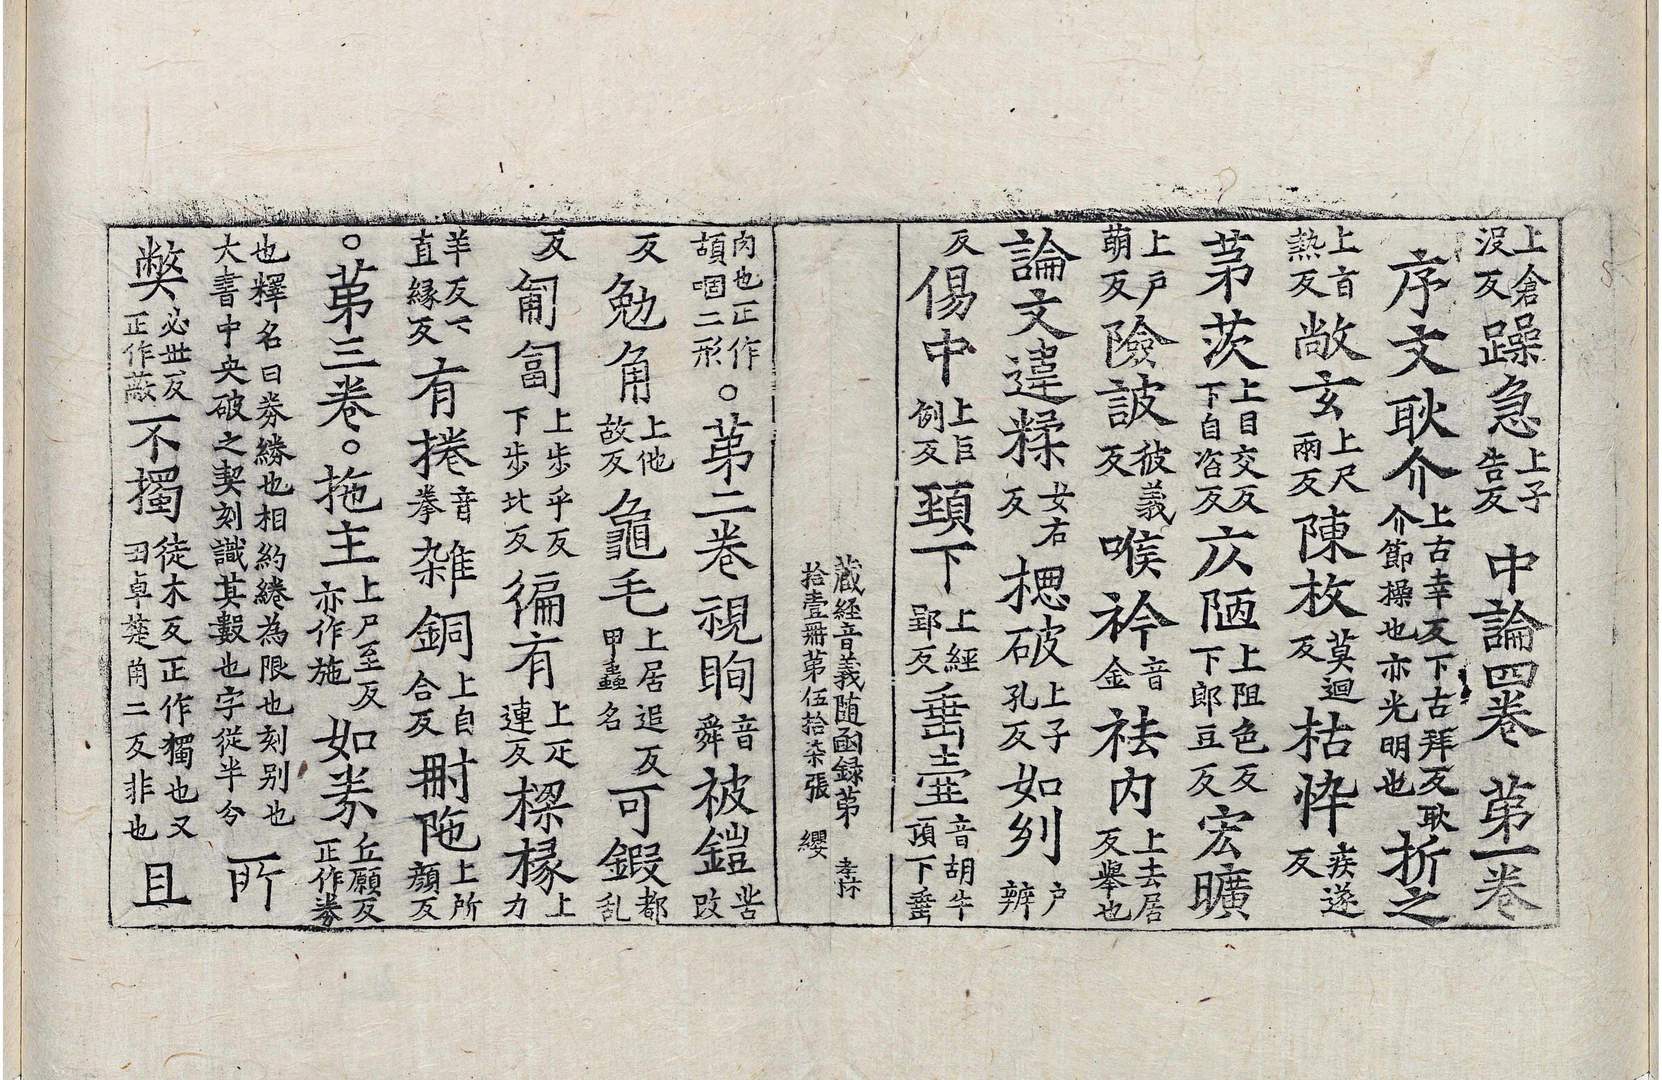 上倉沒反躁急上子告反　中論四卷　苐一卷
序文耿介上古幸反下古拜反耿介節操也亦光明也折之
上音熱反敞玄上尺兩反陳枚莫迴反枯悴疾遂反
苐茨上自交反下自咨反仄陋上阻色反下郎豆反宏曠
上戶萌反險詖彼義反喉衿音金祛內上去居反舉也
論文違糅女右反摁破上子孔反如刿戶辨
反傷中上巨例反頚下上經郢反垂壷音胡牛頂下垂
藏經音義随函録苐拾壹冊苐伍拾柒張　纓
肉也正作頡咽二形。苐二卷視眴音舜被鎧苦改
反勉角上他故反龜毛上居追反甲蟲名可鍜都亂
反匍匐上步乎反下步北反徧有上疋連反樑椽上力
羊反下直緣反有捲音拳雑銅上自合反刪陁上所顔反
。苐三卷。拖主上尸至反亦作施如券丘願反正作券
也釋名曰券綣也相約綣為限也刻別也大書中央破之契刻識其數也字從半分　所
弊必世反正作蔽不擉徒木反正作獨也又丑卓楚角二反非也且